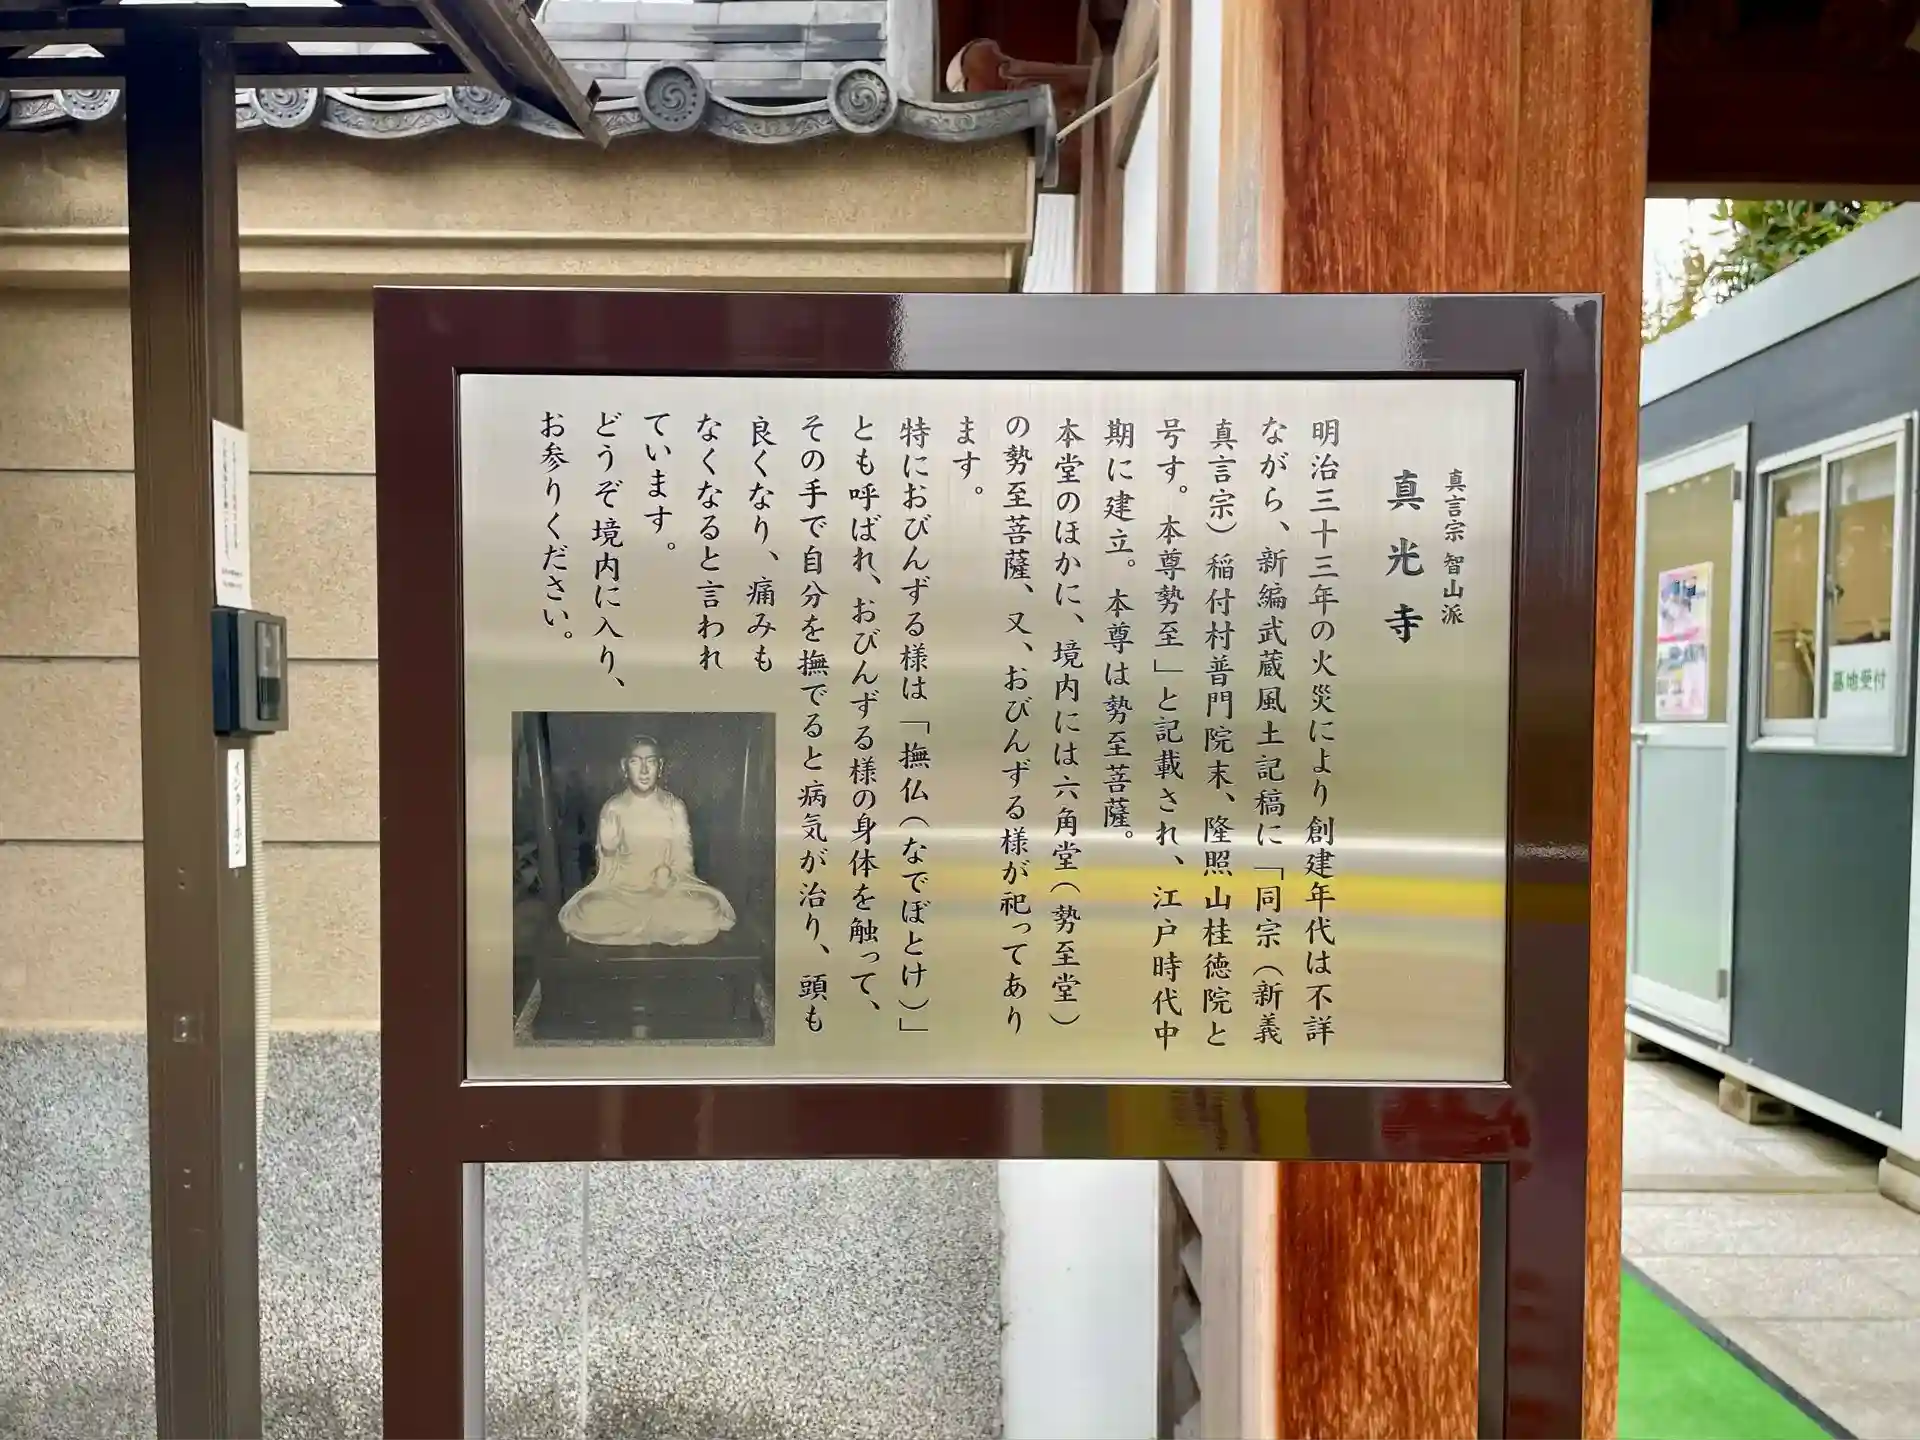 真言宗 智山派
真光寺
明治三十三年の火災により創建年代は不詳
ながら、新編武蔵風土記稿に「同宗（新義
真言宗）稲付村普門院末、隆照山桂徳院と
号す。本尊勢至」と記載され、江戸時代中
期に建立。本尊は勢至菩薩。
本堂のほかに、境内には六角堂（勢至堂）
の勢至菩薩、又、おびんずる様が祀ってあり
ます。
特におびんずる様は「撫仏（なでぼとけ）」
とも呼ばれ、おびんずる様の身体を触って、
その手で自分を撫でると病気が治り、頭も
良くなり、痛みも
なくなると言われ
ています。
どうぞ境内に入り、
お参りください。
インターホン
墓地受付